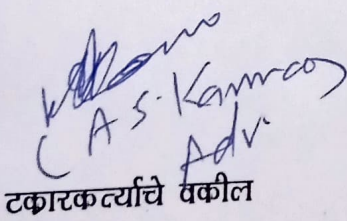 ( A S. Kamracy
Adv.
टकारकर्त्याचे वकील